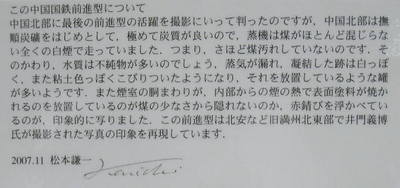 この中国国鉄前進型について
中国北部に最後の前進型の活躍を撮影にいって判ったのですが、中国北部は撫
順炭礦をはじめとして、極めて炭質が良いので、蒸機は煤がほとんど混じらな
い全くの白煙で走っていました。つまり、さほど煤汚れしていないのです。そ
のかわり、水質は不純物が多いのでしょう、蒸気が漏れ、凝結した跡は白っぽ
く、また粘土色っぽくこびりついたようになり、それを放置しているような罐
が多いようです。また煙室の胴まわりが、内部からの煙の熱で表面塗料が焼か
れるのを放置しているのが煤の少なさから隠れないのか、赤錆びを浮かべている
のが、印象的に写りました。この前進型は北安など旧満州北東部で井門義博
氏が撮影された写真の印象を再現しています.
2007.11 松本謙一
Kenichi